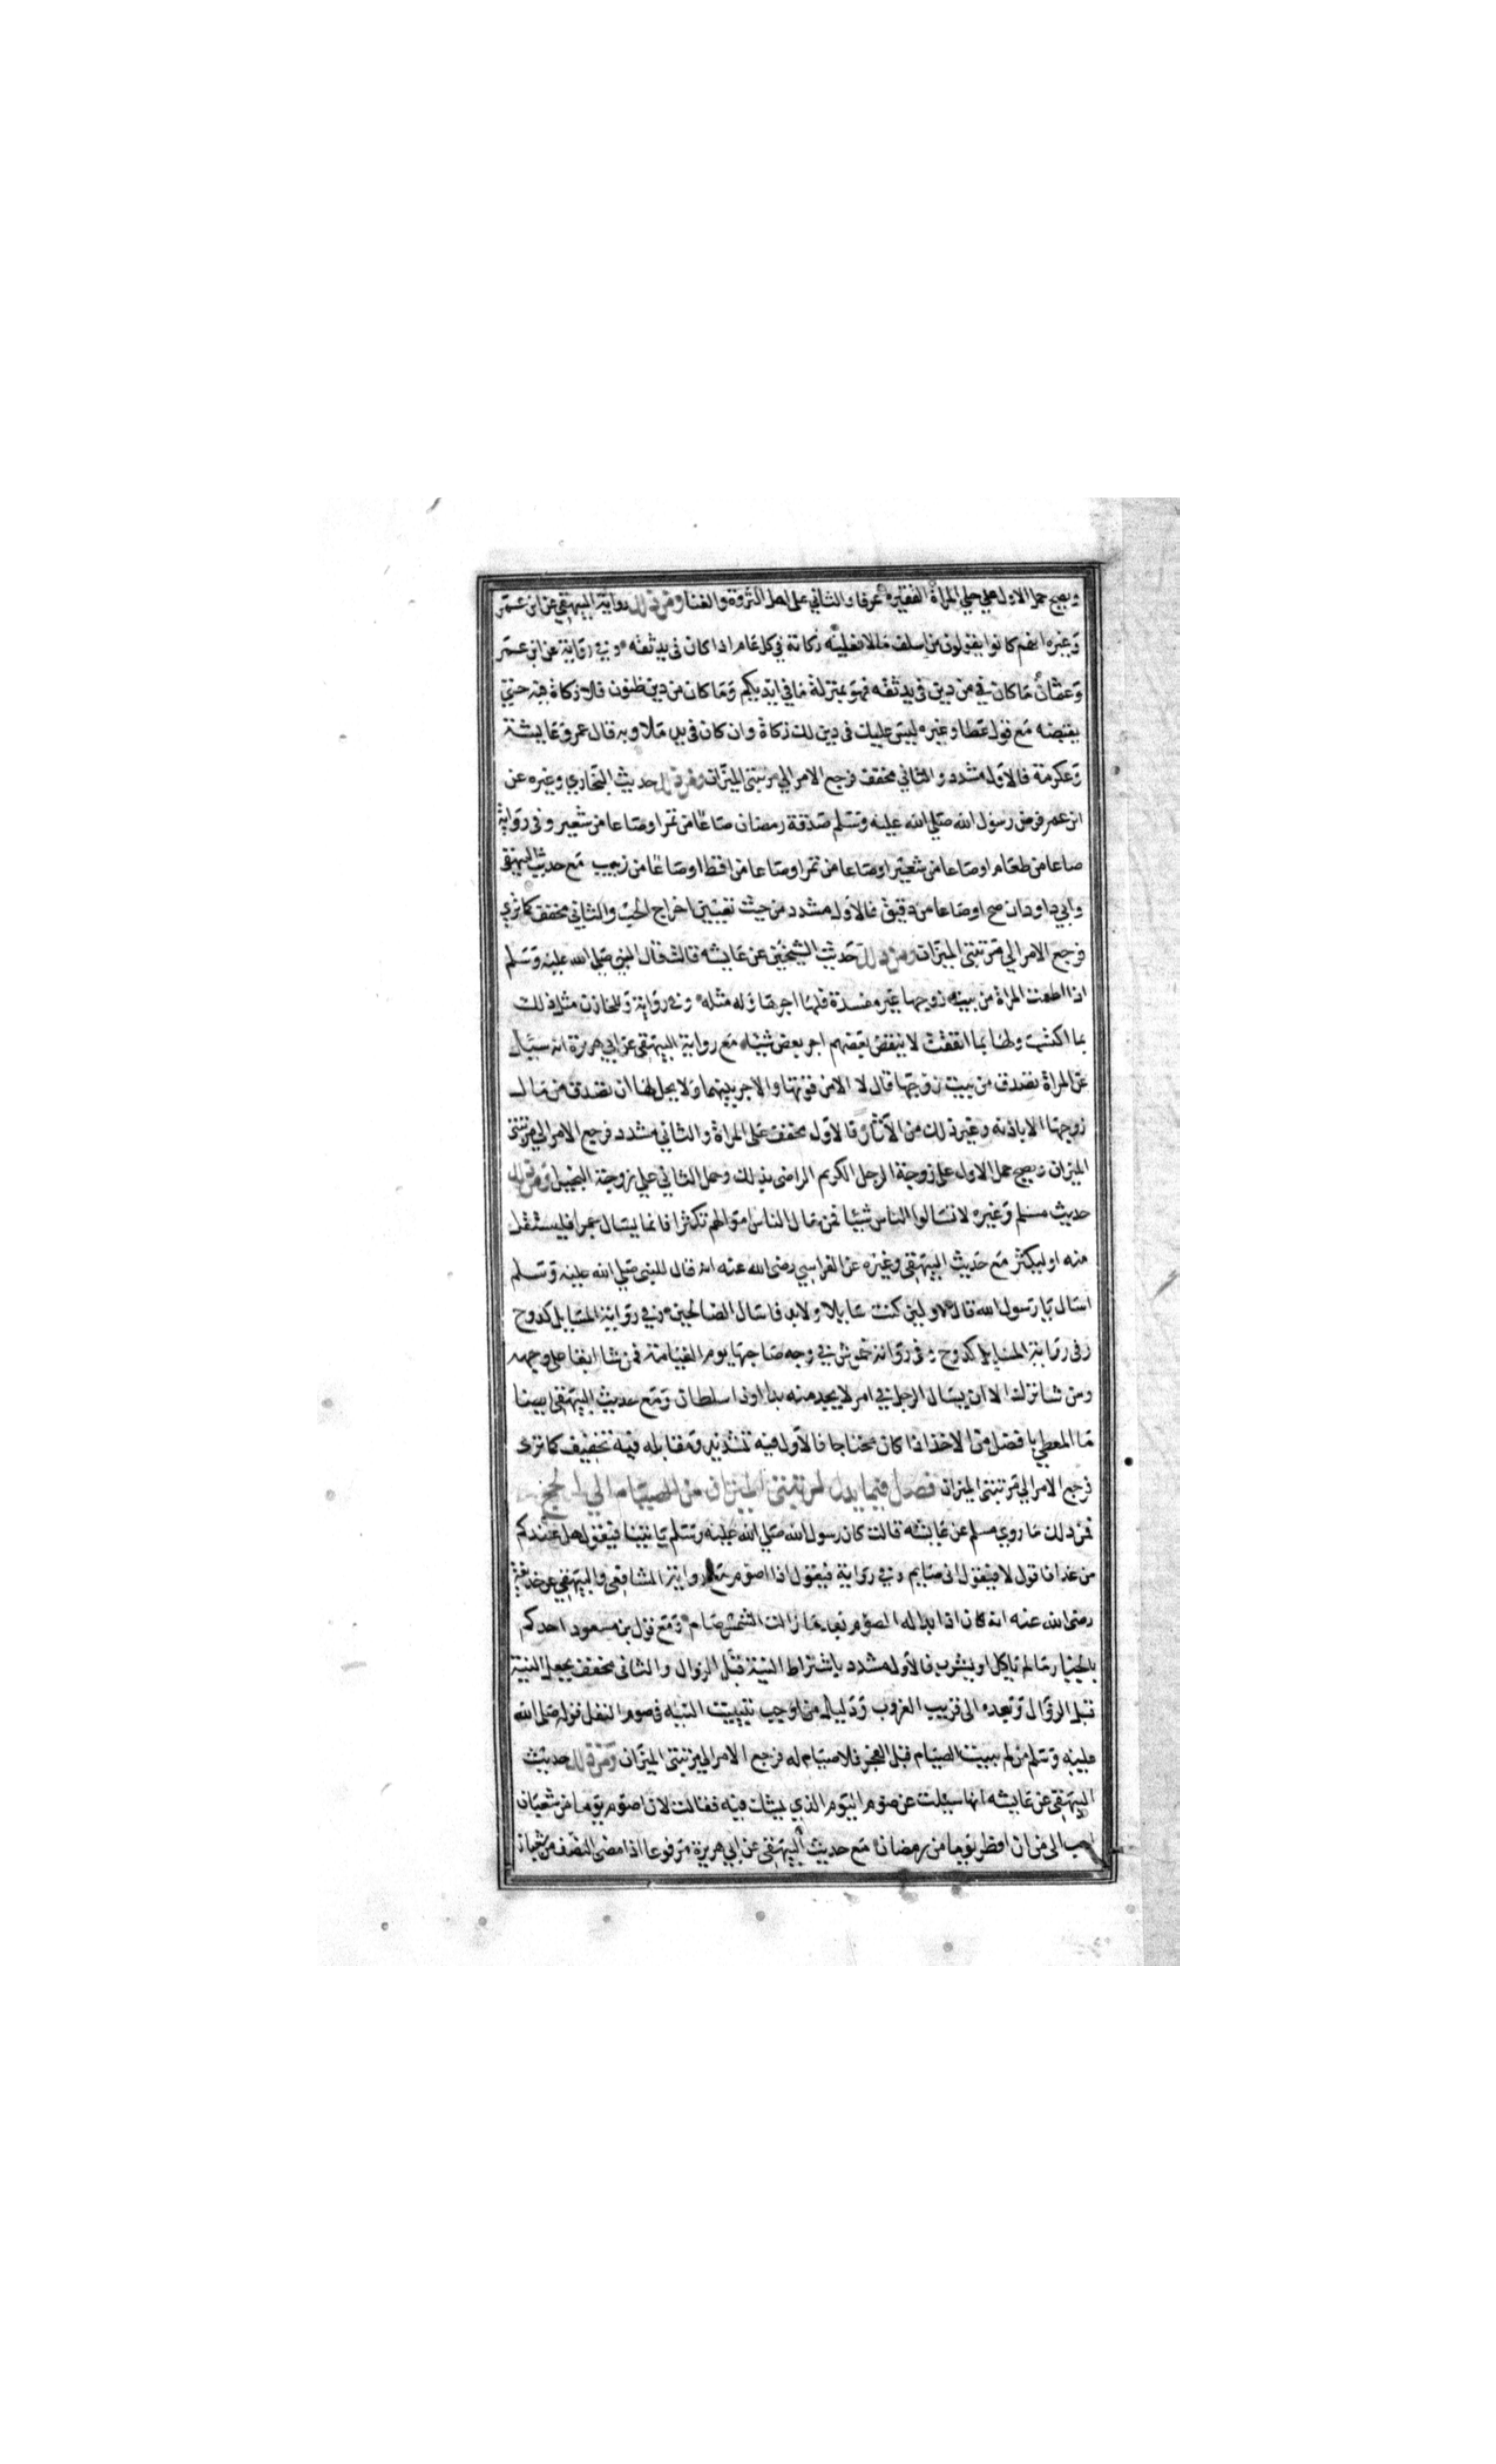 ويصح حمل الاول علي حلي المراة الفقيره عرفا والثاني على اهل الثروة والغنا ومن ذلك رواية البيهقي عن ابن عمر
وغيره انهم كانوا يقولون من اسلف مالا فعليه زكاته في كل عام اذا كان في يد ثقه وفي رواية عن ابن عمر
وعثمان ما كان من دين في يد ثقه فهو بمنزلة ما في ايديكم وما كان من دين ظنون فلا زكاة فيه حتي
يقبضه مع قول عطا وغيره ليس عليك في دين لك زكاة وان كان في يد ملا وبه قال عمر وعايشة
وعكرمة فالاول مشدد والثاني مخفف فرجع الامر الي مرتبتي الميزان ومن ذلك حديث البخاري وغيره عن
ابن عمر فرض رسول الله صلي الله عليه وسلم صدقة رمضان صاعا من تمر او صاعا من شعير وفي رواية
صاعا من طعام او صاعا من شعير او صاعا من تمر او صاعا من اقط او صاعا من زبيب مع حديث البيهقي
وابي داود ان صح او صاعا من دقيق فالاول مشدد من حيث تعيين اخراج الحب والثاني مخفف كما تري
فرجع الامر الي مرتبتي الميزان ومن ذلك حديث الشيخين عن عايشه قالت قال النبي صلى الله عليه وسلم
اذا اطعمت المراة من بيت زوجها غير مفسدة فلها اجرها وله مثله وفي رواية وللخازن مثل ذلك
بما اكتسب ولها بما انفقت لا ينقص بعضهم اجر بعض شيئا مع رواية البيهقي عن ابي هريرة انه سيل
عن المراة تصدق من بيت زوجها قال لا الا من قوتها والاجر بينهما ولا يحل لها ان تصدق من مال
زوجها الا باذنه وغير ذلك من الآثار فالاول مخفف على المراة والثاني مشدد فرجع الامر الي مرتبتي
الميزان ويصح حمل الاول على زوجة الرجل الكريم الراضي بذلك وحمل الثاني علي زوجة البخيل ومن ذلك
حديث مسلم وغيره لا تسالوا الناس شيئا فمن سال الناس اموالهم تكثرا فانما يسال جمرا فليستقل
منه او ليكثر مع حديث البيهقي وغيره عن الفراسي رضي الله عنه انه قال للنبي صلي الله عليه وسلم
اسال يا رسول الله قال لا ولين كنت سايلا ولابد فاسال الصالحين وفي رواية المسايل كدوح
وفي رواية المسايل كدوح وفي رواية خموش في وجه صاحبها يوم القيامة فمن شا ابقا على وجهه
ومن شا ترك الا ان يسال الرجل في امر لا يجد منه بدا او ذا سلطان ومع حديث البيهقي ايضا
ما المعطي بافضل من الاخذ اذا كان محتاجا فالاول فيه تشديد ومقابله فيه تخفيف كما تري
فرجع الامر الي مرتبتي الميزان فصل فيما يدل لمرتبتي الميزان من الصيام الي الحج
فمن ذلك ما روي مسلم عن عايشه قالت كان رسول الله صلي الله عليه وسلم ياتينا فيقول هل عندكم
من غدا فاقول لا فيقول اني صايم وفي رواية فيقول اذا اصوم مع رواية الشافعي والبيهقي عن حذيفة
رضي الله عنه انه كان اذا بدا له الصوم بعد ما زالت الشمس صام ومع قول بن مسعود احدكم
بالخيار ما لم ياكل او يشرب فالاول مشدد باشتراط النية قبل الزوال والثاني مخفف بجعل النية
قبل الزوال وبعده الى قريب الغروب ودليل من اوجب تبييت النيه في صوم النفل قوله صلى الله
عليه وسلم من لم يبيت الصيام قبل الفجر فلا صيام له فرجع الامر الي مرتبتي الميزان ومن ذلك حديث
البيهقي عن عايشه انها سيلت عن صوم اليوم الذي يشك فيه فقالت لان اصوم يوما من شعبان
احب الى من ان افطر يوما من رمضان مع حديث البيهقي عن ابي هريرة مرفوعا اذا مضى النصف من شعبان